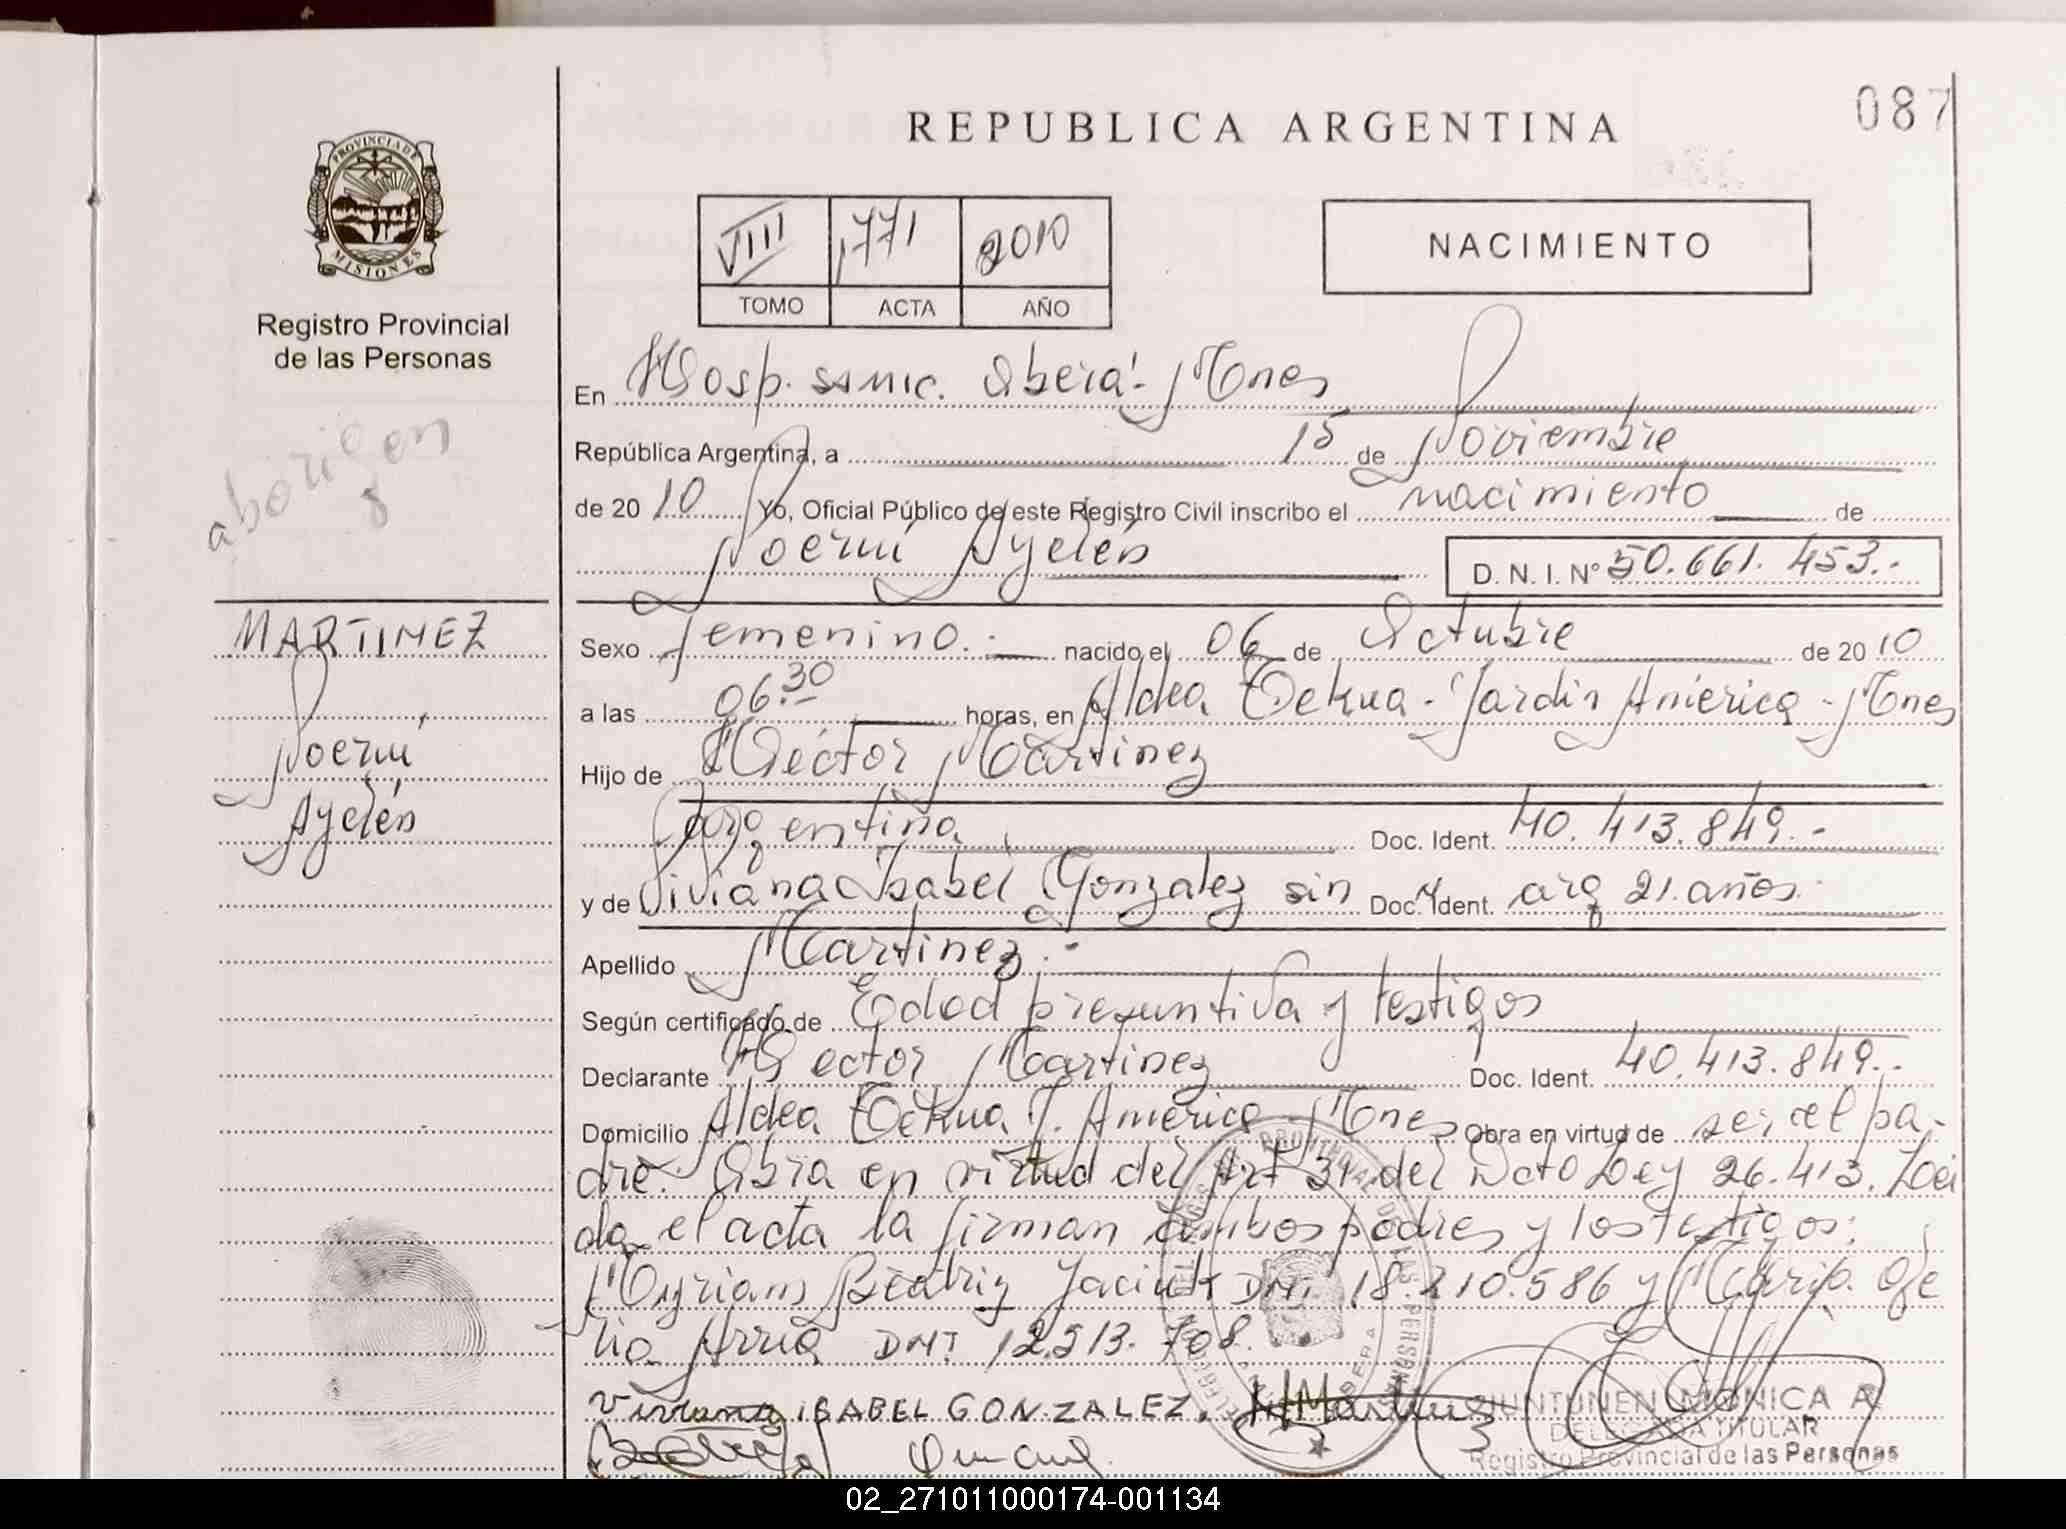 087
REPUBLICA ARGENTINA
PROVINCIA DE
MISIONES
Registro Provincial
de las Personas
VIII 1771 2010
TOMO ACTA AÑO
NACIMIENTO
aborigen
En Hosp. samic. Oberá - Mnes
República Argentina, a 15 de Noviembre
de 2010 Yo, Oficial Público de este Registro Civil inscribo el nacimiento de
Noemí Ayelén
D. N. I. Nº 50.661.453.-
MARTINEZ
Noemí
Ayelén
Sexo femenino.- nacido el 06 de Octubre de 2010
a las 06.30 horas, en Aldea Jardín América - Mnes
Hijo de Héctor Martinez
Argentina Doc. Ident. 40.413.849.-
y de Viviana Isabel Gonzalez sin Doc. Ident. arg 21 años.
Apellido Martinez.-
Según certificado de Edad presuntiva y testigos
Declarante Hector Martinez Doc. Ident. 40.413.849.-
Domicilio Aldea J. América Mnes Obra en virtud de ser el pa-
dre. Obra en virtud del Art 31 del Dcto Ley 26.413. Leí
da el acta la firman ambos padres y los testigos:
Myrian Beatriz DNI 18.210.586 y María Ofe
lia DNI 12.513.708.
Viviana ISABEL GONZALEZ. HMartinez
SIUNTUNEN MONICA A.
DELEGADA TITULAR
Registro Provincial de las Personas
02_271011000174-001134